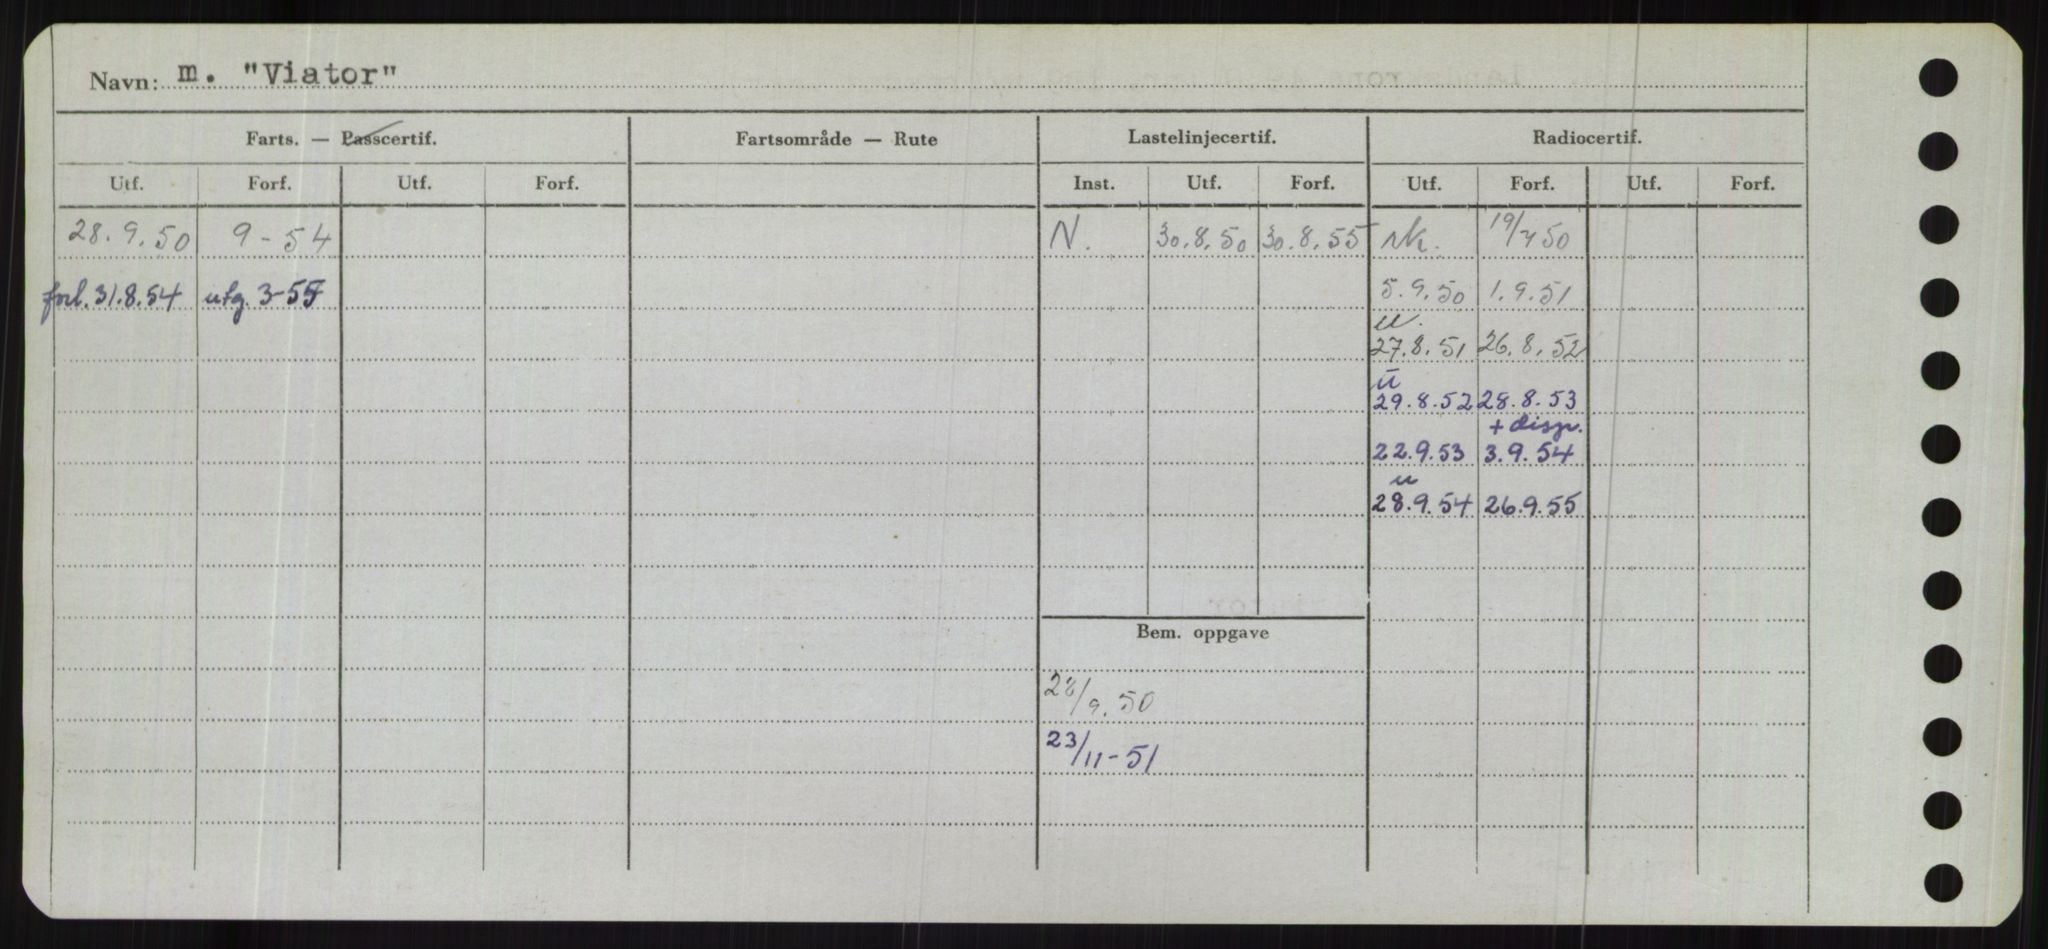 Navn: m. "Viator"
Farts. — Passcertif. Fartsområde — Rute Lastelinjecertif. Radiocertif.
Utf. Forf. Utf. Forf. Inst. Utf. Forf. Utf. Forf. Utf. Forf.
28.9.50 9-54 N. 30.8.50 30.8.55 19/7 50
forl. 31.8.54 utg. 3-55 5.9.50 1.9.51
u.
27.8.51 26.8.52
u
29.8.52 28.8.53
+ disp.
22.9.53 3.9.54
u
28.9.54 26.9.55
Bem. oppgave
28/9.50
23/11-51